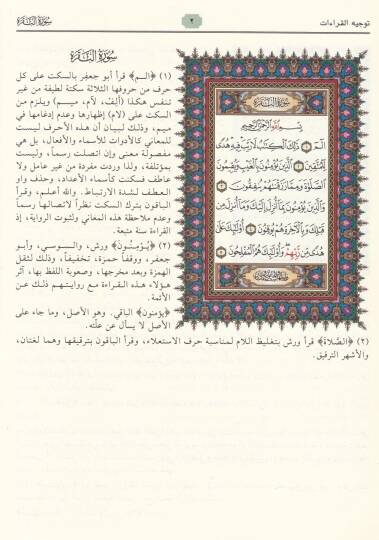 توجيه القراءات
٢
سورة البقرة
سورة البقرة
(١) ﴿الـم﴾ قرأ أبو جعفر بالسكت على كل
حرف من حروفها الثلاثة سكتة لطيفة من غير
تنفس هكذا (ألِفْ، لآم، ميـم) ويلزم من
السكت على (لام) إظهارها وعدم إدغامها في
ميم، وذلك لبيان أن هذه الأحرف ليست
للمعاني كالأدوات للأسماء والأفعال، بل هي
مفصولة معنى وإن اتصلت رسماً، وليست
بمؤتلفة، ولذا وردت مفردة من غير عامل ولا
عاطف فسكنت كأسماء الأعداد، وحذف واو
العطف لشدة الارتباط. والله أعلم، وقرأ
الباقون بترك السكت نظراً لاتصالها رسماً
وعدم ملاحظة هذه المعاني ولثبوت الرواية، إذ
القراءة سنة متبعة.
(٢) ﴿يُومِنُونَ﴾ ورش، والسوسي، وأبو
جعفر، ووقفاً حمزة، تخفيفاً، وذلك لثقل
الهمزة وبعد مخرجها، وصعوبة اللفظ بها، آثر
هؤلاء هذه القراءة مع روايتهم ذلك عن
الأئمة.
﴿يؤمنون﴾ الباقي. وهو الأصل، وما جاء على
الأصل لا يسأل عن علّته.
(٢) ﴿الصَّلاة﴾ قرأ ورش بتغليظ اللام لمناسبة حرف الاستعلاء، وقرأ الباقون بترقيقها وهما لغتان،
والأشهر الترقيق.
سورة البقرة
بسم الله الرحمن الرحيم
الٓمٓ ١ ذَٰلِكَ الْكِتَٰبُ لَا رَيْبَ فِيهِ هُدًى
لِّلْمُتَّقِينَ ٢ الَّذِينَ يُؤْمِنُونَ بِالْغَيْبِ وَيُقِيمُونَ
الصَّلَوٰةَ وَمِمَّا رَزَقْنَٰهُمْ يُنفِقُونَ ٣
وَالَّذِينَ يُؤْمِنُونَ بِمَا أُنزِلَ إِلَيْكَ وَمَا أُنزِلَ مِن
قَبْلِكَ وَبِالْآخِرَةِ هُمْ يُوقِنُونَ ٤ أُولَٰئِكَ عَلَىٰ
هُدًى مِّن رَّبِّهِمْ وَأُولَٰئِكَ هُمُ الْمُفْلِحُونَ ٥